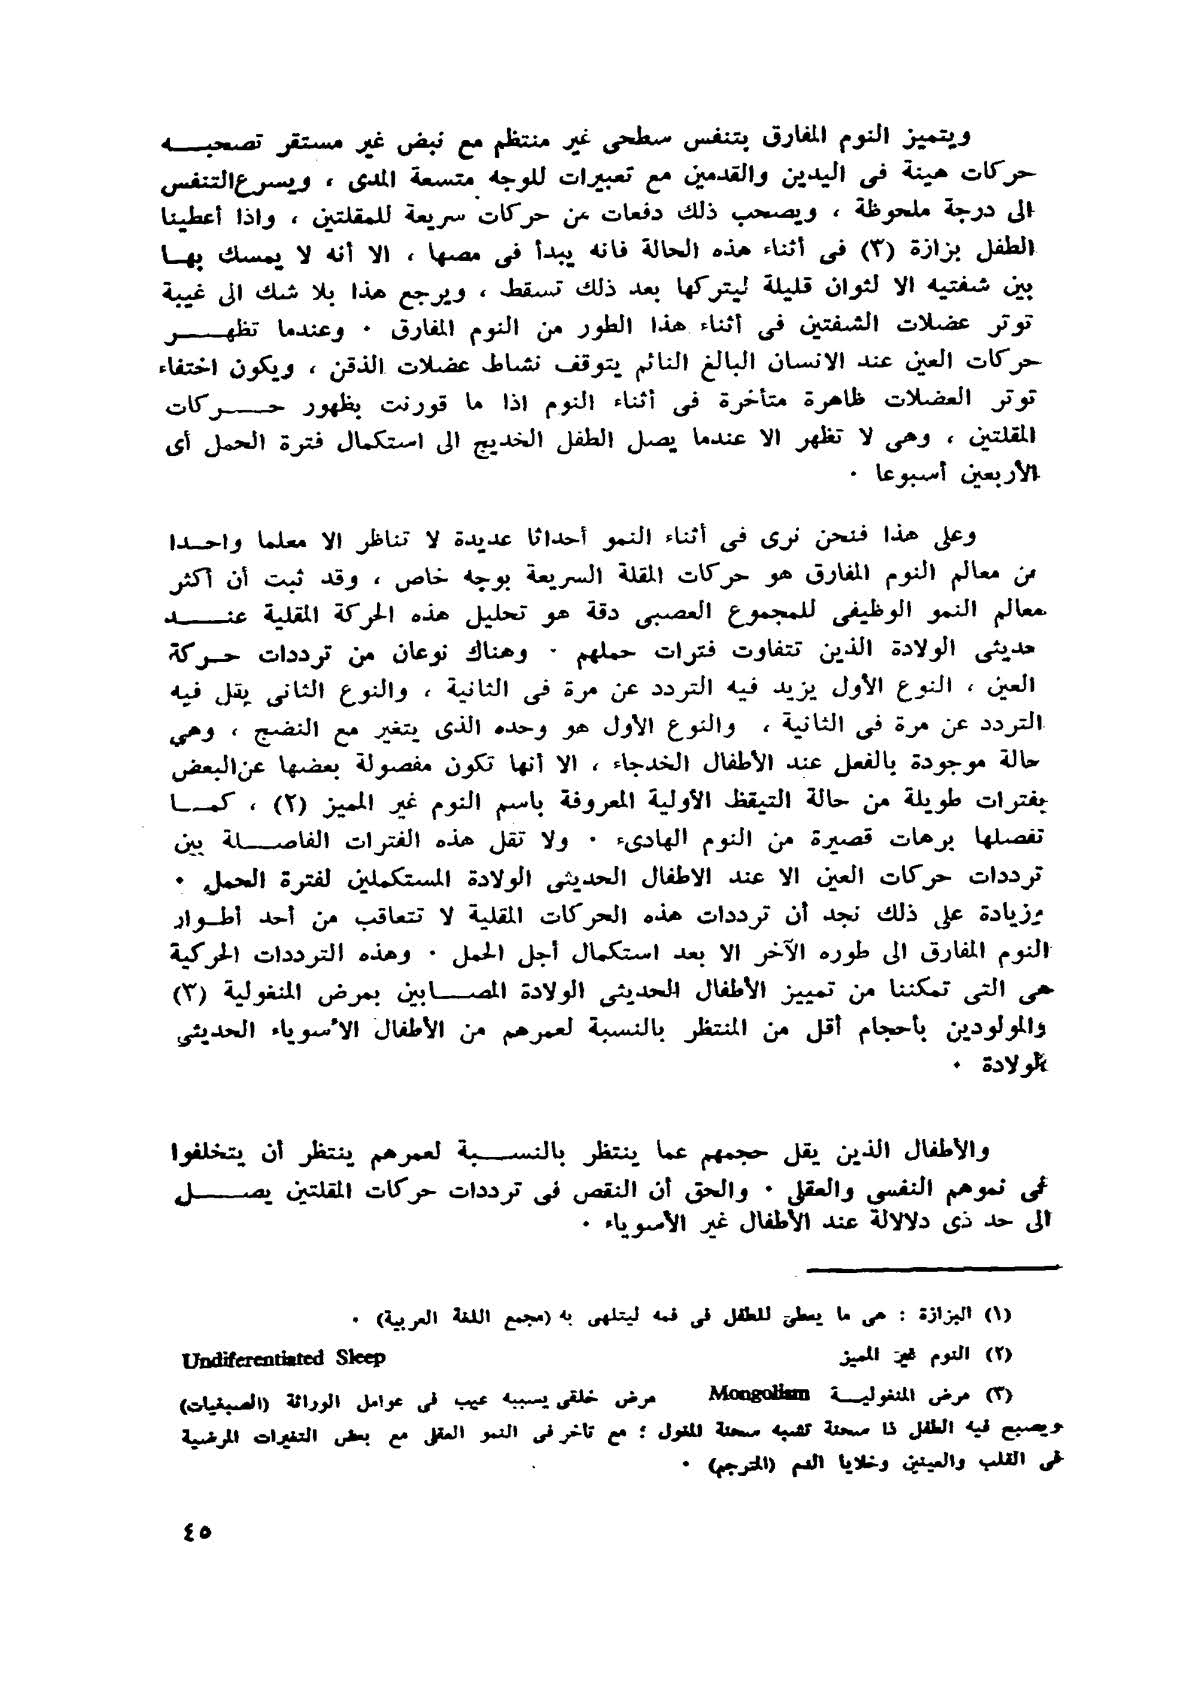 ويتميز النوم المفارق بتنفس سطحى غير منتظم مع نبض غير مستقر تصحبه
حركات هينة فى اليدين والقدمين مع تعبيرات للوجه متسعة المدى ، ويسرع التنفس
الى درجة ملحوظة ، ويصحب ذلك دفعات من حركات سريعة للمقلتين ، واذا أعطينا
الطفل بزازة (٣) فى أثناء هذه الحالة فانه يبدأ فى مصها ، الا أنه لا يمسك بها
بين شفتيه الا لثوان قليلة ليتركها بعد ذلك تسقط ، ويرجع هذا بلا شك الى غيبة
توتر عضلات الشفتين فى أثناء هذا الطور من النوم المفارق . وعندما تظهر
حركات العين عند الانسان البالغ النائم يتوقف نشاط عضلات الذقن ، ويكون اختفاء
توتر العضلات ظاهرة متأخرة فى أثناء النوم اذا ما قورنت بظهور حركات
المقلتين ، وهى لا تظهر الا عندما يصل الطفل الخديج الى استكمال فترة الحمل أى
الأربعين أسبوعا .
وعلى هذا فنحن نرى فى أثناء النمو أحداثا عديدة لا تناظر الا معلما واحدا
من معالم النوم المفارق هو حركات المقلة السريعة بوجه خاص ، وقد ثبت أن أكثر
معالم النمو الوظيفى للمجموع العصبى دقة هو تحليل هذه الحركة المقلية عند
حديثى الولادة الذين تتفاوت فترات حملهم . وهناك نوعان من ترددات حركة
العين ، النوع الأول يزيد فيه التردد عن مرة فى الثانية ، والنوع الثانى يقل فيه
التردد عن مرة فى الثانية ، والنوع الأول هو وحده الذى يتغير مع النضج ، وهي
حالة موجودة بالفعل عند الأطفال الخدجاء ، الا أنها تكون مفصولة بعضها عن البعض
بفترات طويلة من حالة التيقظ الأولية المعروفة باسم النوم غير المميز (٢) ، كما
تفصلها برهات قصيرة من النوم الهادىء . ولا تقل هذه الفترات الفاصلة بين
ترددات حركات العين الا عند الاطفال الحديثى الولادة المستكملين لفترة الحمل .
وزيادة على ذلك نجد أن ترددات هذه الحركات المقلية لا تتعاقب من أحد أطوار
النوم المفارق الى طوره الآخر الا بعد استكمال أجل الحمل . وهذه الترددات الحركية
هى التى تمكننا من تمييز الأطفال الحديثى الولادة المصابين بمرض المنغولية (٣)
والمولودين بأحجام أقل من المنتظر بالنسبة لعمرهم من الأطفال الأسوياء الحديثي
الولادة .
والأطفال الذين يقل حجمهم عما ينتظر بالنسبة لعمرهم ينتظر أن يتخلفوا
فى نموهم النفسى والعقلى . والحق أن النقص فى ترددات حركات المقلتين يصل
الى حد ذى دلالالة عند الأطفال غير الأسوياء .
(١) البزازة : هى ما يعطى للطفل فى فمه ليتلهى به (مجمع اللغة العربية) .
(٢) النوم غير المميز Undiferentiated Sleep
(٣) مرض المنغولية Mongolism مرض خلقى يسببه عيب فى عوامل الوراثة (الصبغيات)
ويصبح فيه الطفل ذا سحنة تشبه سحنة المغول ؛ مع تأخر فى النمو العقلى مع بعض التغيرات المرضية
فى القلب والعينين وخلايا الدم (المترجم) .
٤٥